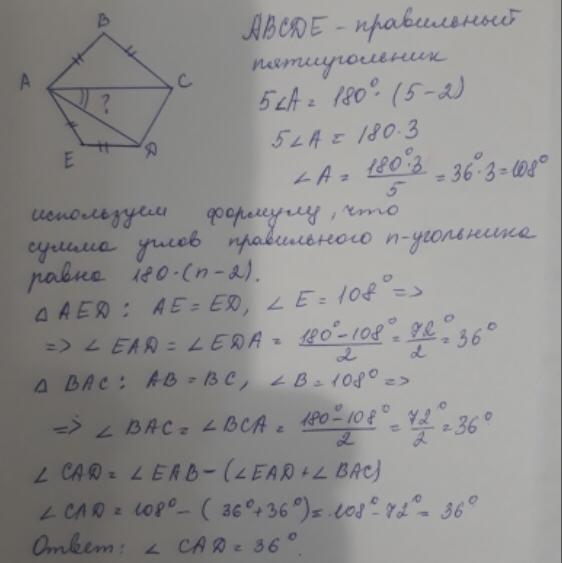 ABCDE - правильный
пятиугольник
5∠A = 180° · (5-2)
5∠A = 180·3
∠A = 180°·3/5 = 36°·3 = 108°
используем формулу, что
сумма углов правильного n-угольника
равна 180·(n-2).
Δ AED: AE = ED, ∠E = 108° =>
=> ∠EAD = ∠EDA = 180°-108°/2 = 72°/2 = 36°
Δ BAC: AB = BC, ∠B = 108° =>
=> ∠BAC = ∠BCA = 180°-108°/2 = 72°/2 = 36°
∠CAD = ∠EAB - (∠EAD + ∠BAC)
∠CAD = 108° - (36°+36°) = 108°-72° = 36°
Ответ: ∠ CAD = 36°.
B
A
C
?
E
D